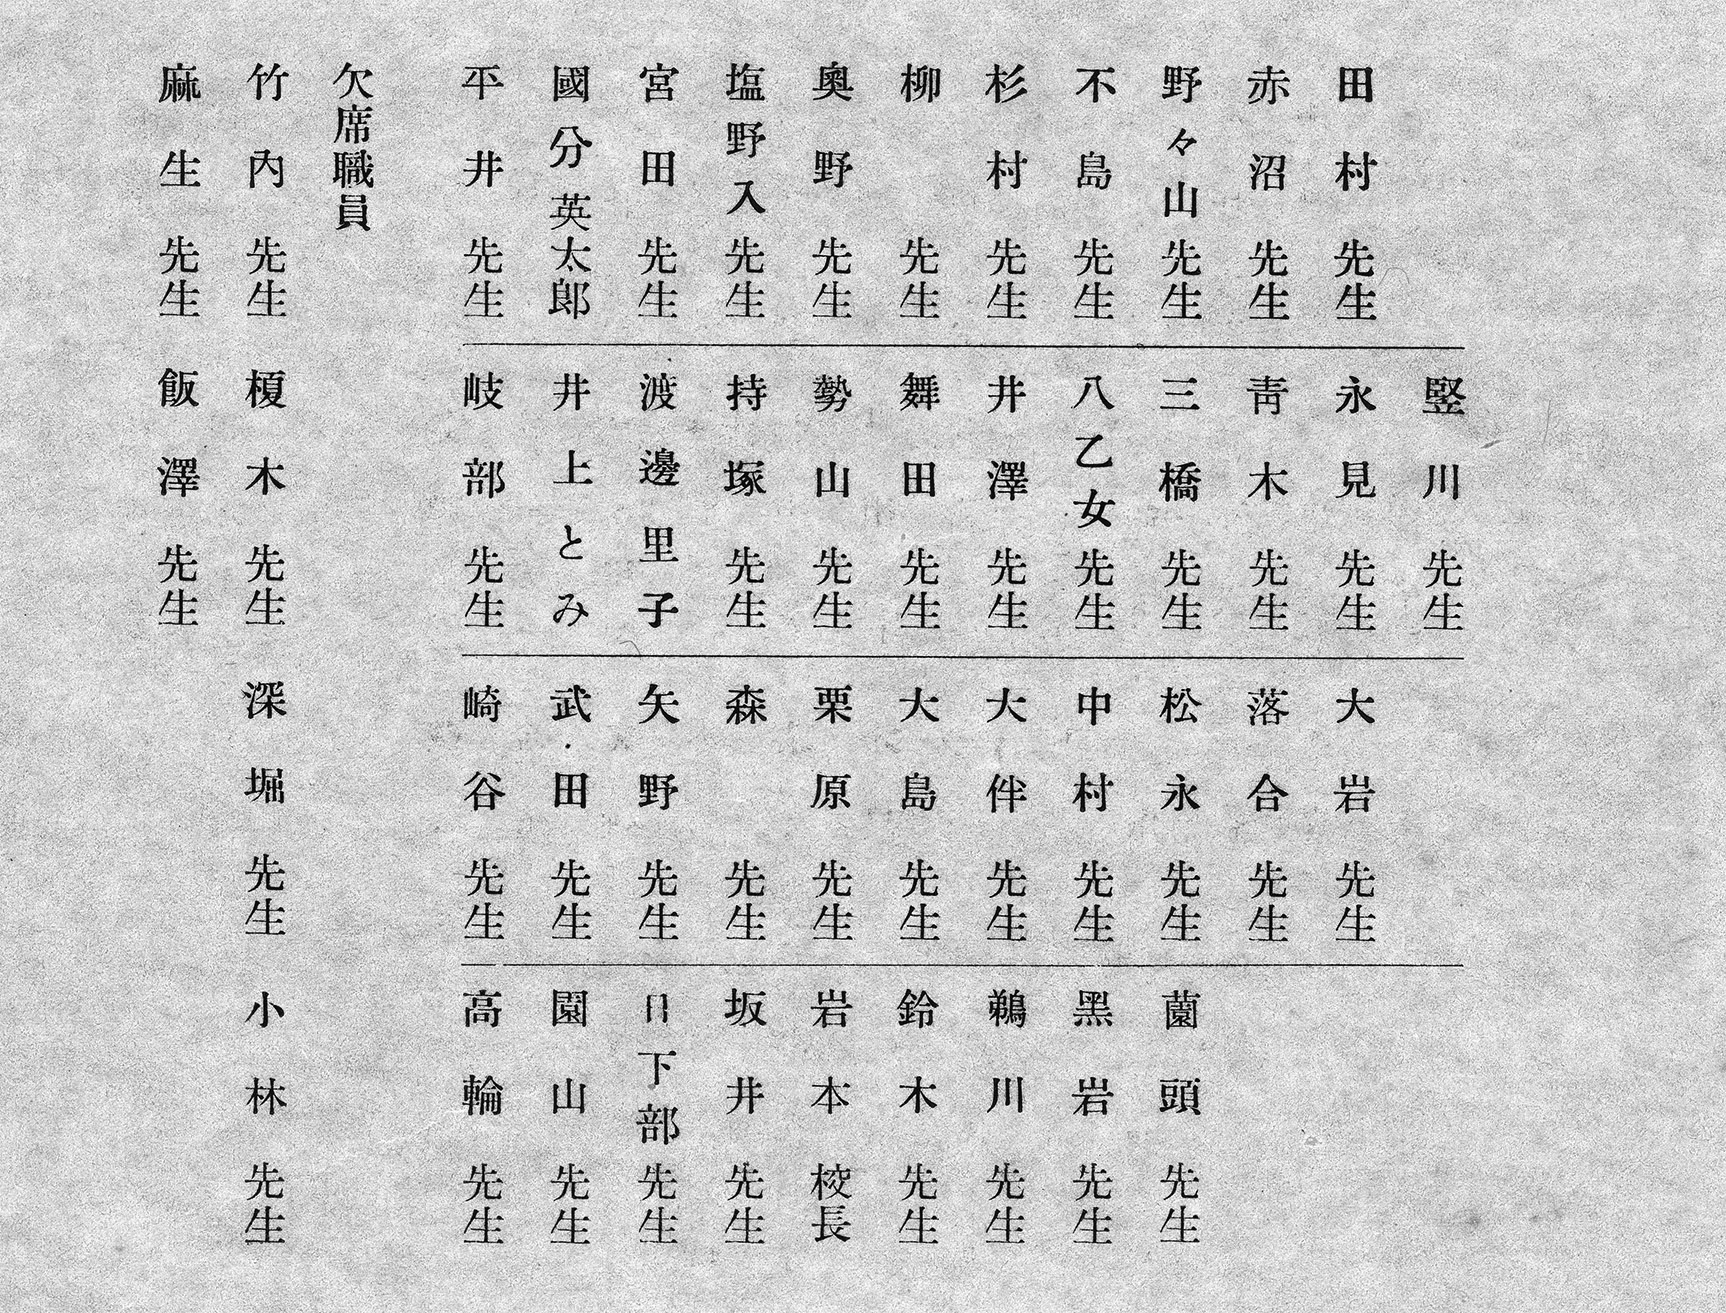 田村先生
赤沼先生
野々山先生
不島先生
杉村先生
柳先生
奥野先生
塩野入先生
宮田先生
國分英太郎
平井先生
竪川先生
永見先生
青木先生
三橋先生
八乙女先生
井澤先生
舞田先生
勢山先生
持塚先生
渡邊里子
井上とみ
岐部先生
大岩先生
落合先生
松永先生
中村先生
大伴先生
大島先生
栗原先生
森先生
矢野先生
武田先生
崎谷先生
薗頭先生
黑岩先生
鵜川先生
鈴木先生
岩本校長
坂井先生
日下部先生
園山先生
高輪先生
欠席職員
竹內先生
榎木先生
深堀先生
小林先生
麻生先生
飯澤先生